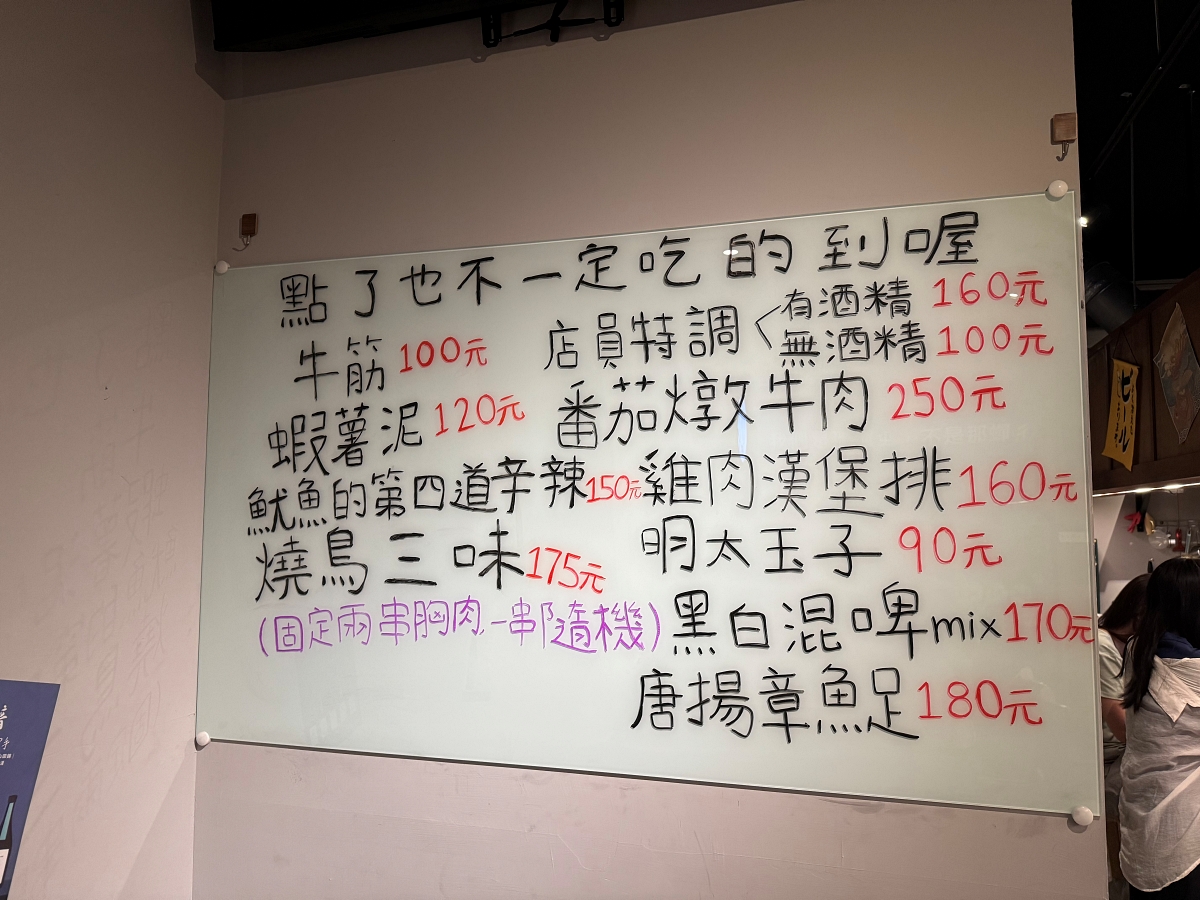 點了也不一定吃的到喔
牛筋 100元
蝦薯泥 120元
魷魚的第四道辛辣 150元
燒鳥三味 175元
(固定兩串胸肉,一串隨機)
店員特調
有酒精 160元
無酒精 100元
番茄燉牛肉 250元
雞肉漢堡排 160元
明太玉子 90元
黑白混啤mix 170元
唐揚章魚足 180元
ビール